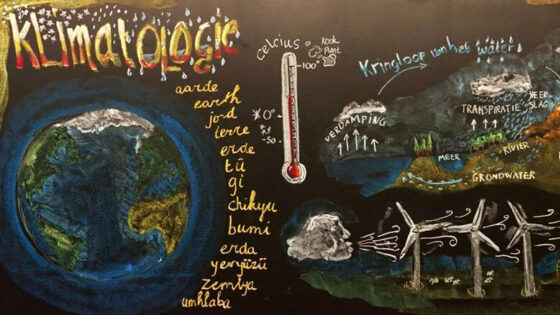 KLimatoLogie
aarde
earth
jord
terre
erde
tû
gi
chikyu
bumi
erda
yeryüzü
zemlja
umhlaba
celcius
kook
punt
-100°
0°
-50
Kringloop van het water
VERDAMPING
TRANSPIRATIE
NEER
SLAG
MEER
RIVIER
GRONDWATER